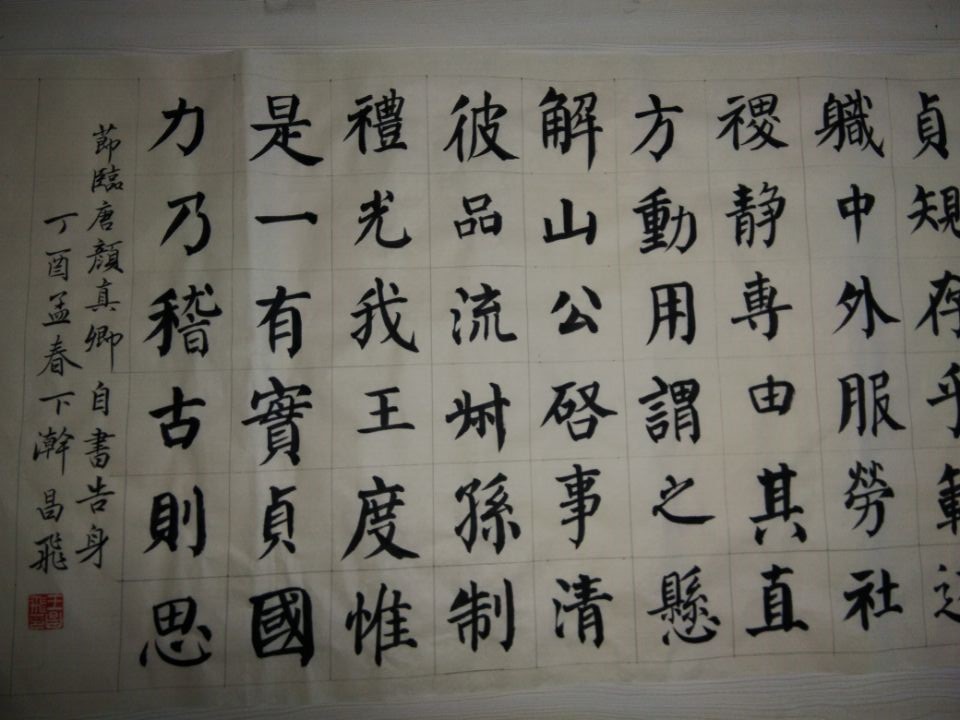 貞規存乎範述
軄中外服勞社
稷静専由其直
方動用謂之懸
解山公啓事清
彼品流叔孫制
禮光我王度惟
是一有實貞國
力乃稽古則思
莭臨唐顔真卿自書告身
丁酉孟春下澣昌飛